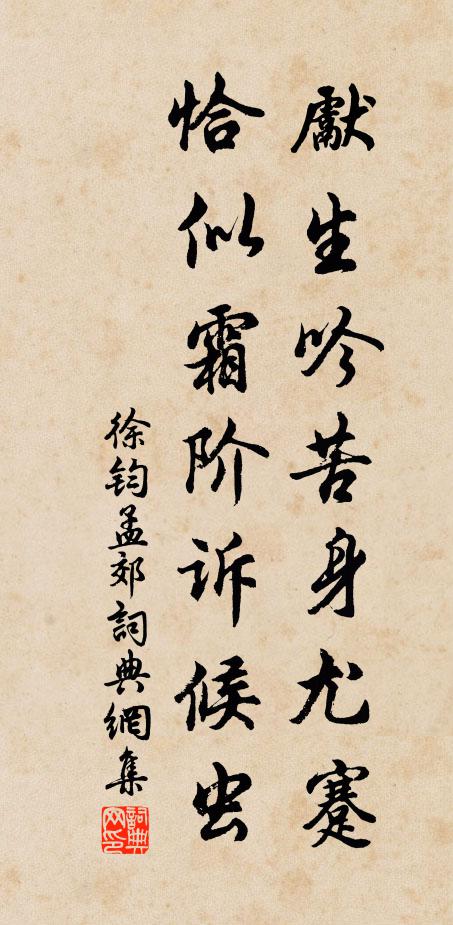 獻生吟苦身尤蹇
恰似霜阶诉候虫
徐钧孟郊詞典網集
詞典网印